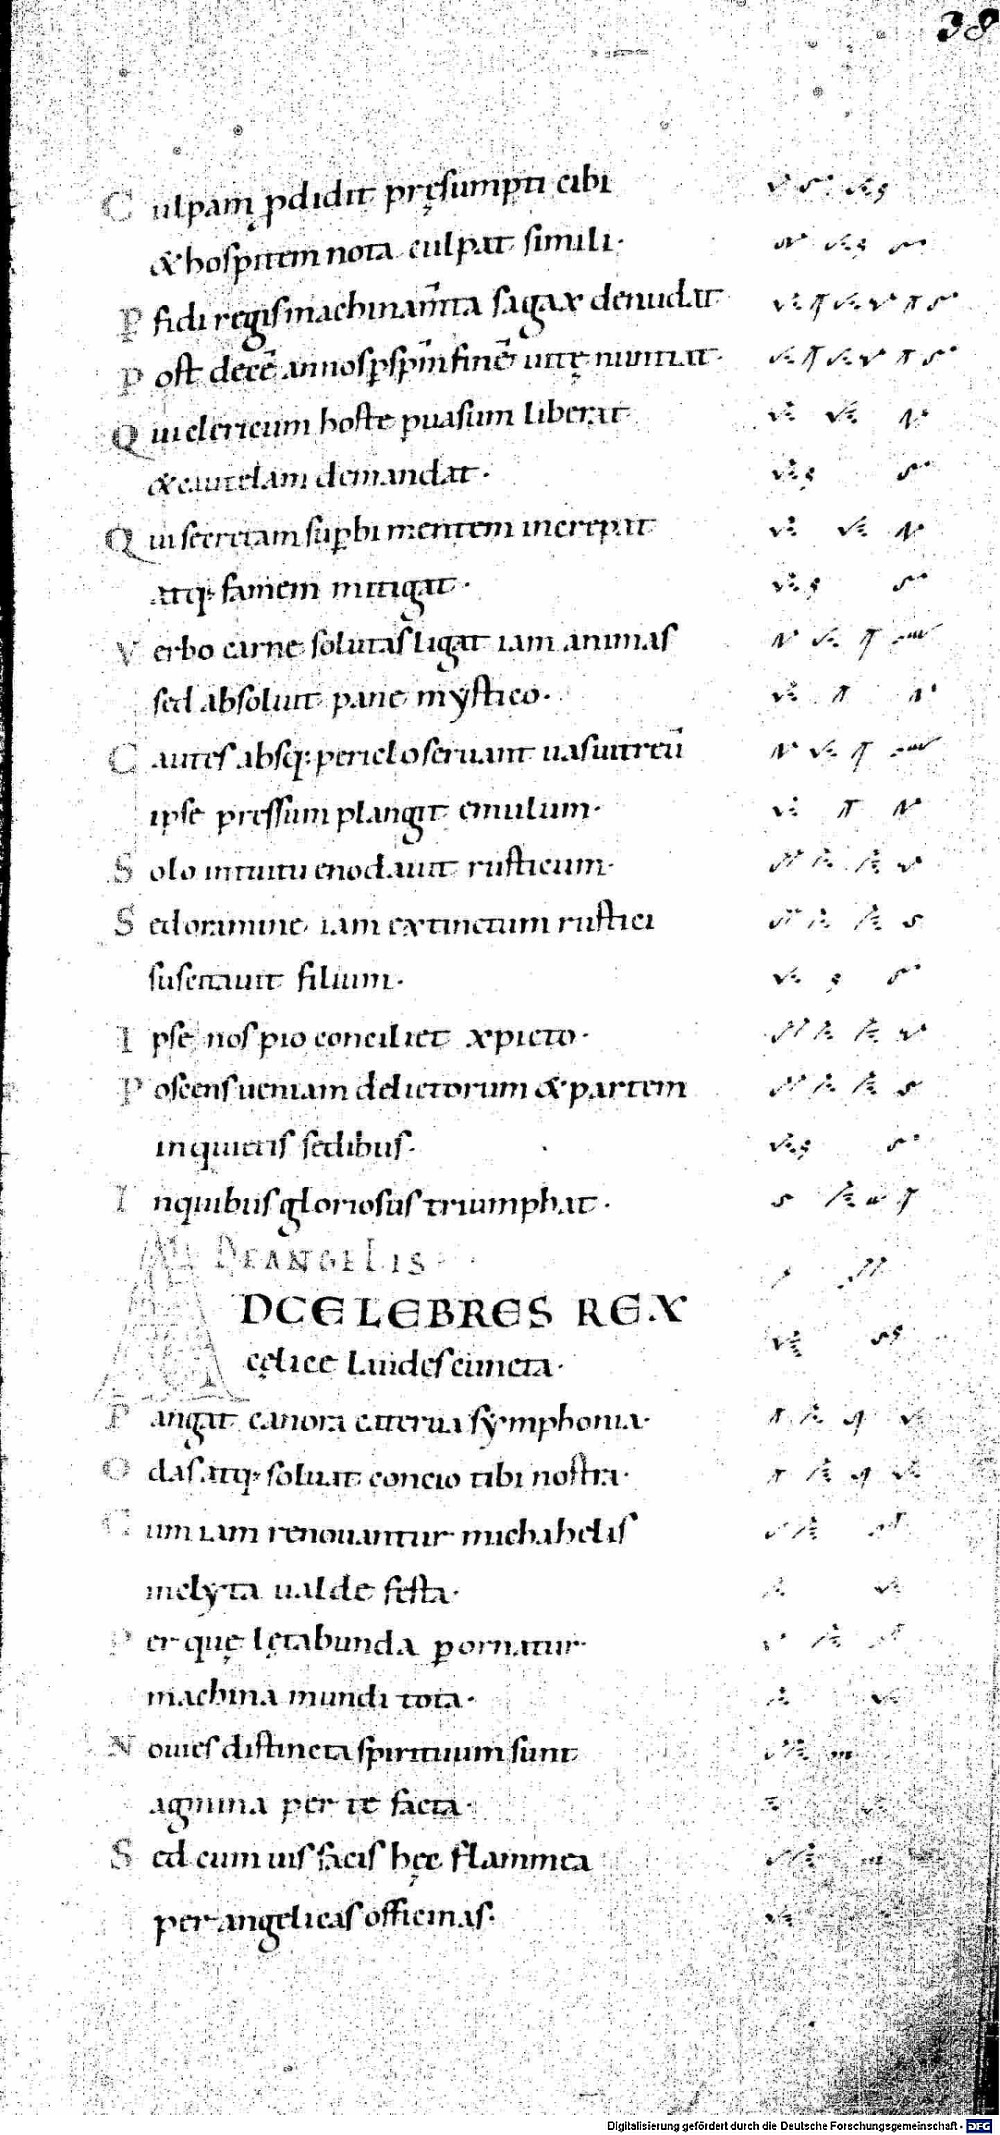 38
Culpam p̄didit pręsumpti cibi
& hospitem nota culpat simili·
P̄fidi regis machinam̄ta sagax denudat
Post decē annos p̄sp̄m finē uitę nuntiat·
Qui clericum hoste puasum liberat
& cautelam demandat·
Qui secretam sup̄bi mentem increpat
atq; famem mitigat·
Verbo carne solutas ligat iam animas
sed absoluit pane mystico·
Cautes absq; periclo seruant uas uitreū
ipse pressum plangit emulum·
Solo intuitu enodauit rusticum·
Sed oramine iam extinctum rustici
suscitauit filium·
Ipse nos pio conciliet xpicto·
Poscens ueniam delictorum & partem
in quietis sedibus·
In quibus gloriosus triumphat·
DE ANGELIS
ADCELEBRES REX
cęlice laudes cuncta·
Pangat canora caterua symphonia·
Odas atq; soluat concio tibi nostra·
Cum iam renouantur michahelis
inclyta ualde festa·
Per quę lętabunda p̄ornatur·
machina mundi tota·
Nouies distincta spirituum sunt
agmina per te facta·
Sed cum uis facis hęc flammea
per angelicas officinas·
Digitalisierung gefördert durch die Deutsche Forschungsgemeinschaft - DFG